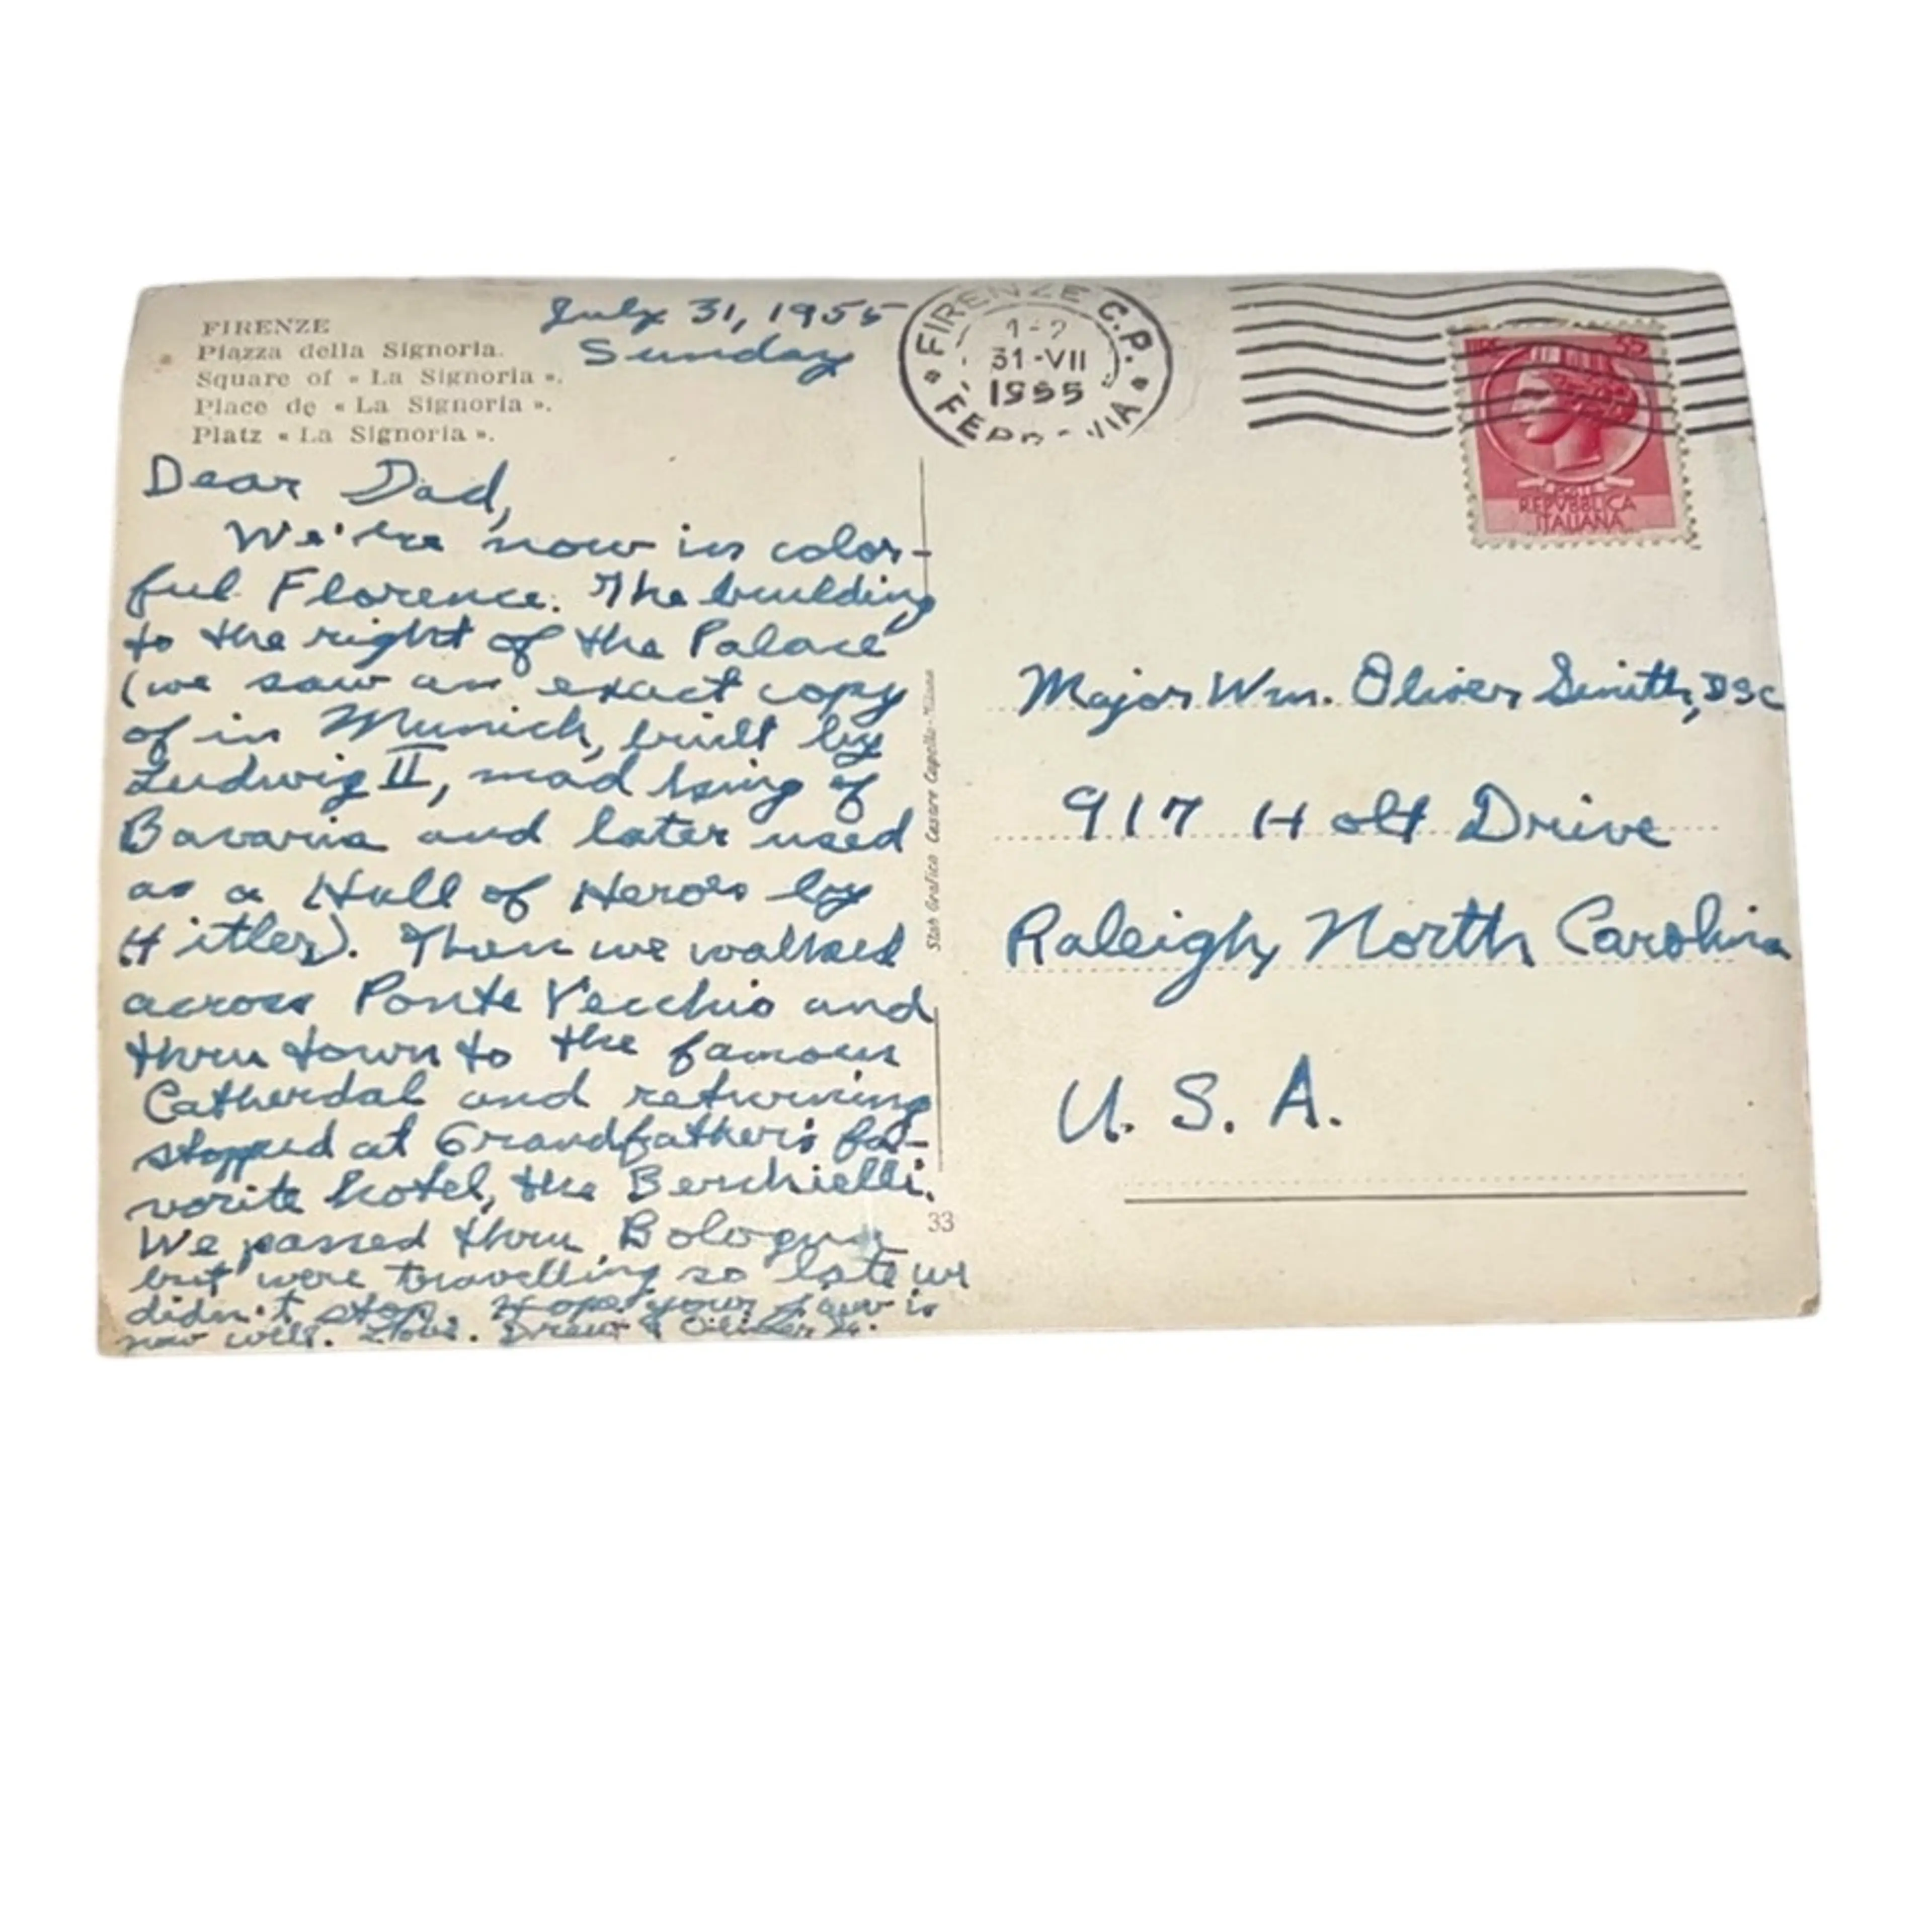 FIRENZE
Piazza della Signoria.
Square of « La Signoria ».
Place de « La Signoria ».
Platz « La Signoria ».
July 31, 1955
Sunday
FIRENZE C.P.
1-2
31-VII
1955
55
POSTE
REPVBBLICA
ITALIANA
Dear Dad,
We're now in color-
ful Florence. The building
to the right of the Palace
(we saw an exact copy
of in Munich, built by
Ludwig II, mad king of
Bavaria and later used
as a Hall of Heroes by
Hitler). Then we walked
across Ponte Vecchio and
thru town to the famous
Catherdal and returning
stopped at Grandfather's fa-
vorite hotel, the Berchielli.
We passed thru Bologna
but were travelling so late we
didn't stop. Hope your jaw is
now well. Love. Drew & Oliver
Stab Grafico Cesare Capello-Milano
33
Major Wm. Oliver Smith, DSC
917 Holt Drive
Raleigh, North Carolina
U. S. A.